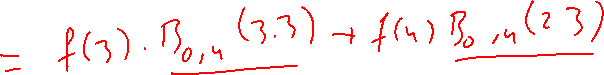 = f(3) · B₀,₄(3.3) + f(4) B₀,₄(2 3)